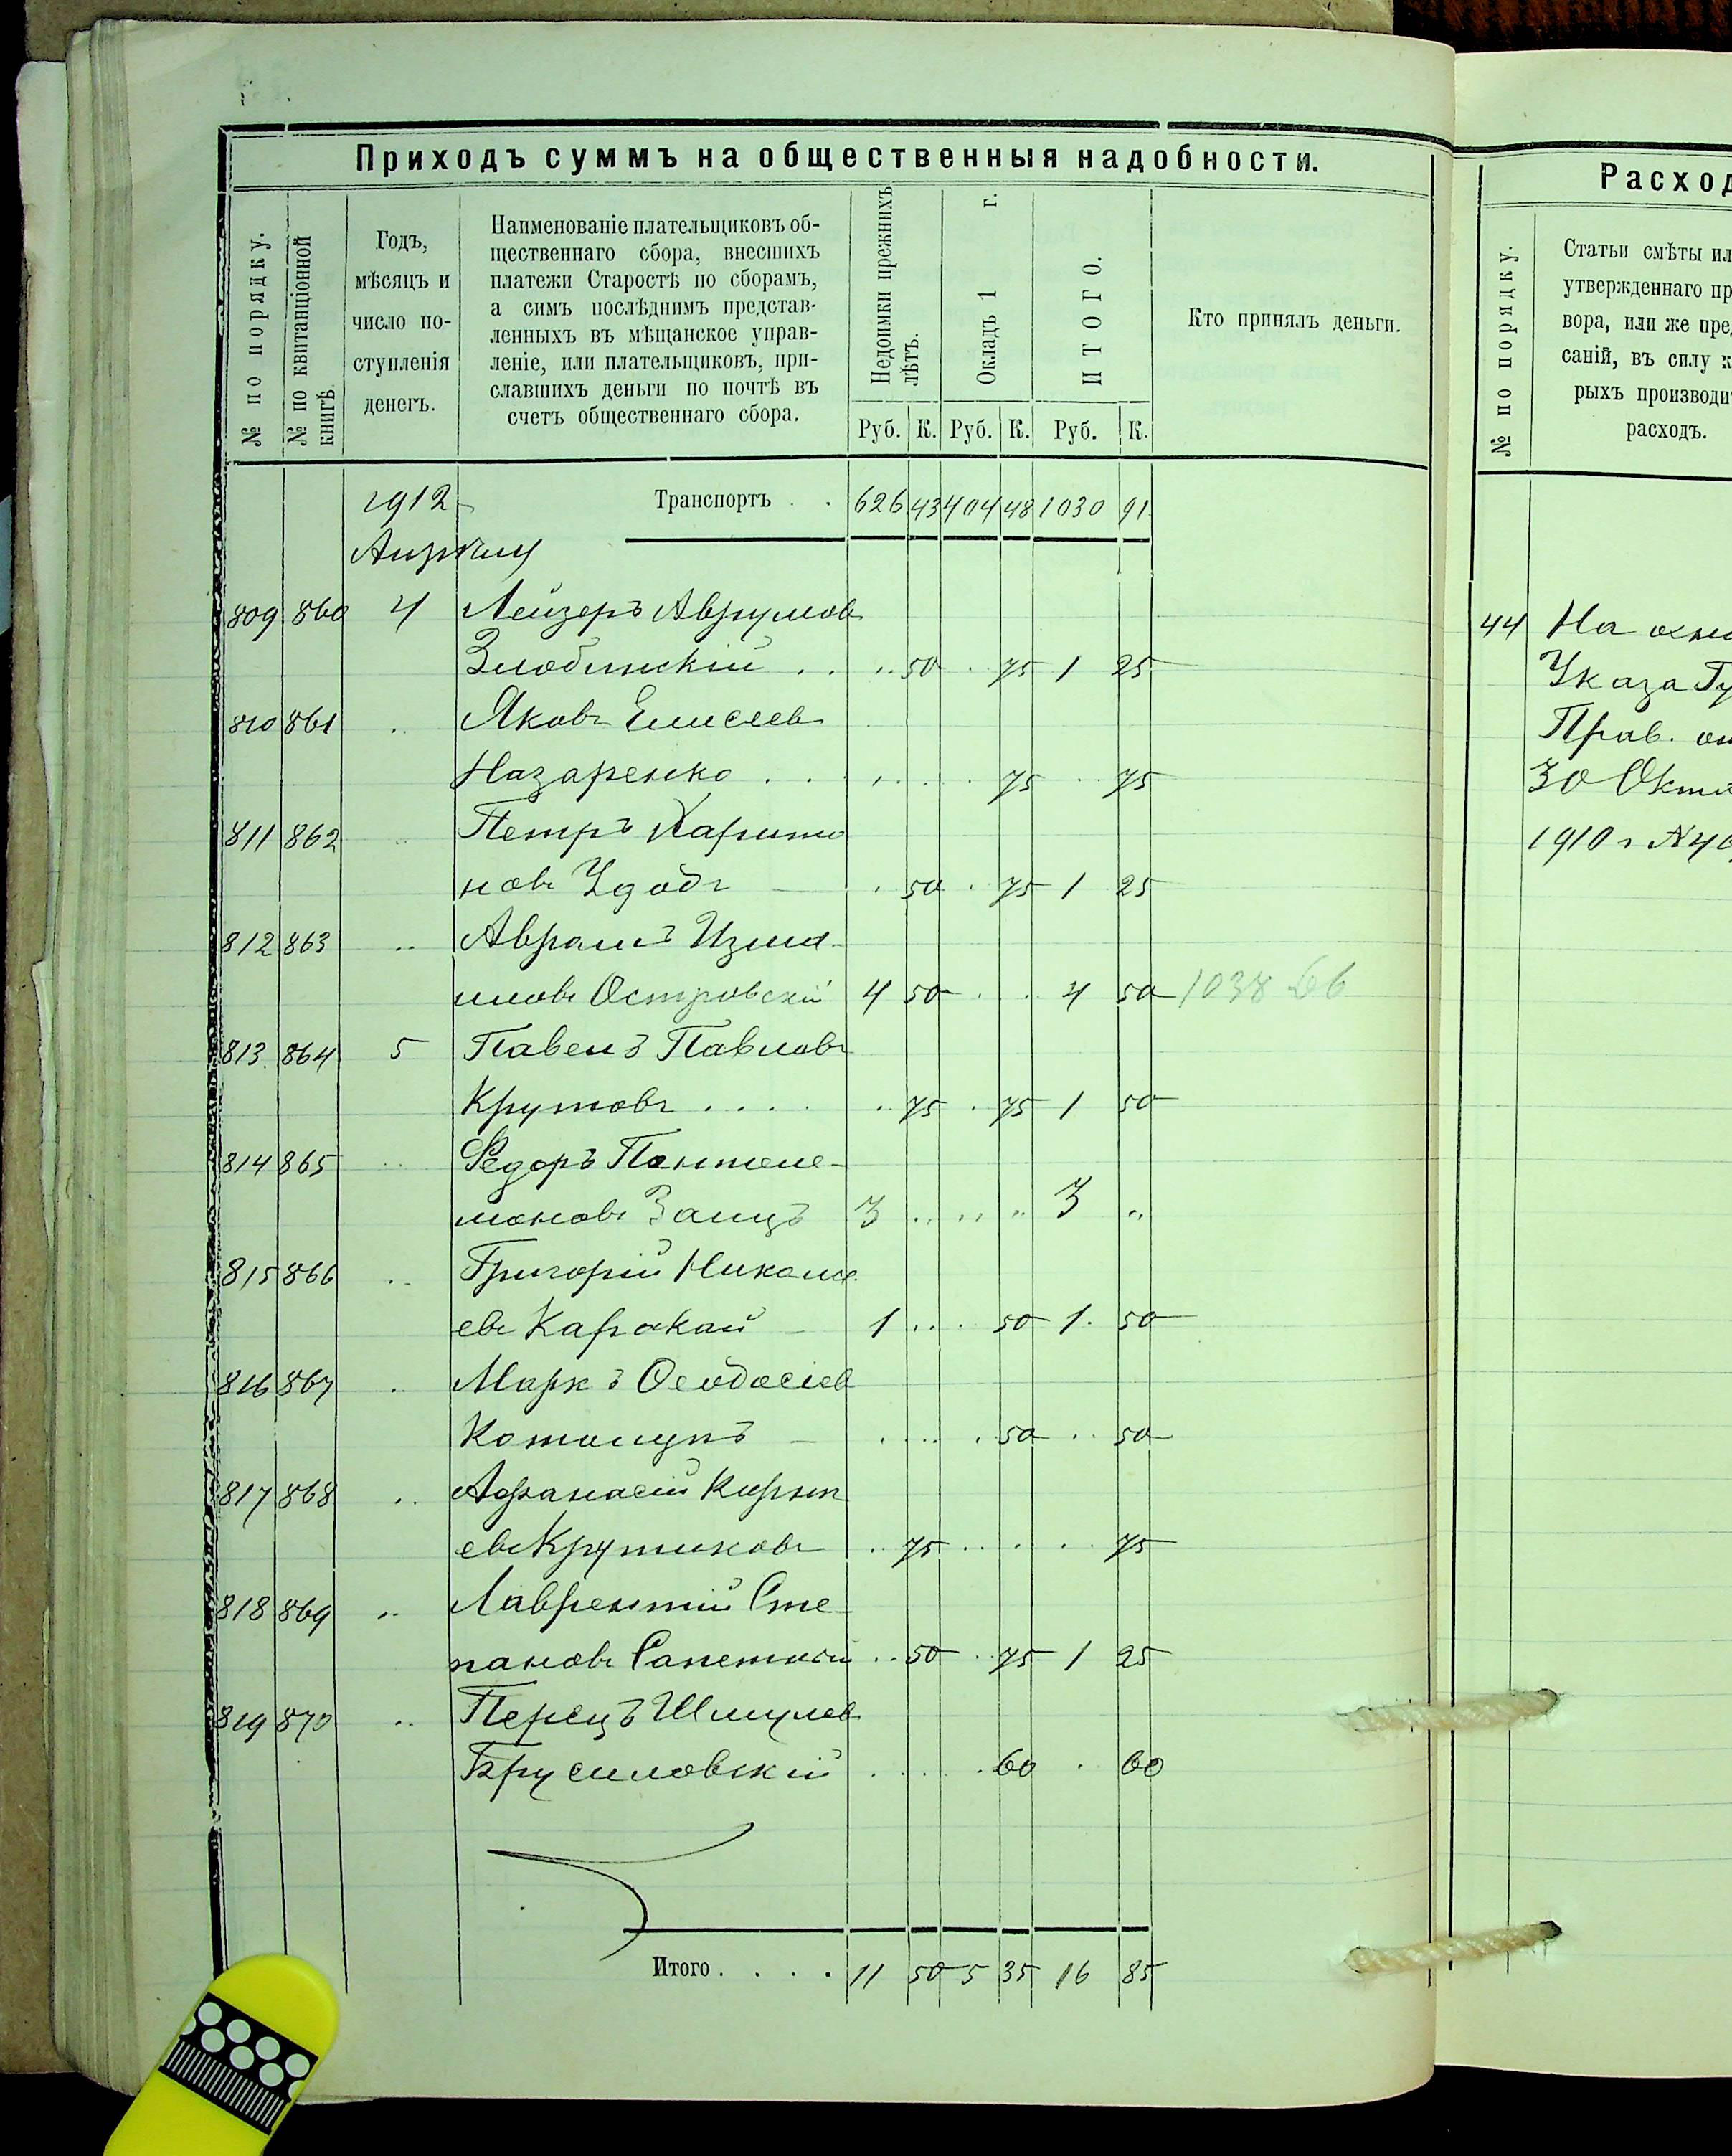 Приходъ суммъ на общественныя надобности.
№ по порядку.
№ по квитанціонной книгѣ.
Годъ, мѣсяцъ и число поступленія денегъ.
Наименованіе плательщиковъ об-
щественнаго сбора, внесшихъ
платежи Старостѣ по сборамъ,
а симъ послѣднимъ представ-
ленныхъ въ мѣщанское управ-
леніе, или плательщиковъ, при-
славшихъ деньги по почтѣ въ
счетъ общественнаго сбора.
Недоимки прежнихъ лѣтъ.
Окладъ 1 г.
ИТОГО.
Кто принялъ деньги.
Руб. К. Руб. К. Руб. К.
1912 Транспортъ . . 626 43 404 48 1030 91
Апрѣля
809 860 4 Лейзеръ Аврумов
Злобинскій . . 50 75 1 25
810 861 Яковъ Елисеев
Назаренко . . . 75 75
811 862 Петръ Харито
новъ Удодъ 50 75 1 25
812 863 Аврамъ Изма
иловъ Островскій 4 50 4 50 1038 66
813 864 5 Павелъ Павловъ
Крутовъ . . . . 75 75 1 50
814 865 Федоръ Пантеле-
моновъ Заицъ 3 3
815 866 Григорій Никола
евъ Каракай 1 50 1 50
816 867 Маркъ Ѳеодосіев
Котолупъ 50 50
817 868 Афанасій
евъ Крутиковъ 75 75
818 869 Лаврентій Сте
пановъ 50 75 1 25
819 870 Перецъ Шмулев
Брусиловскій 60 60
Итого . . . . 11 50 5 35 16 85
Расход
№ по порядку.
Статьи смѣты ил
утвержденнаго пр
вора, или же пре
саній, въ силу к
рыхъ производи
расходъ.
44 На осно
Указа Гу
Прав. от
30 Октя
1910 г №